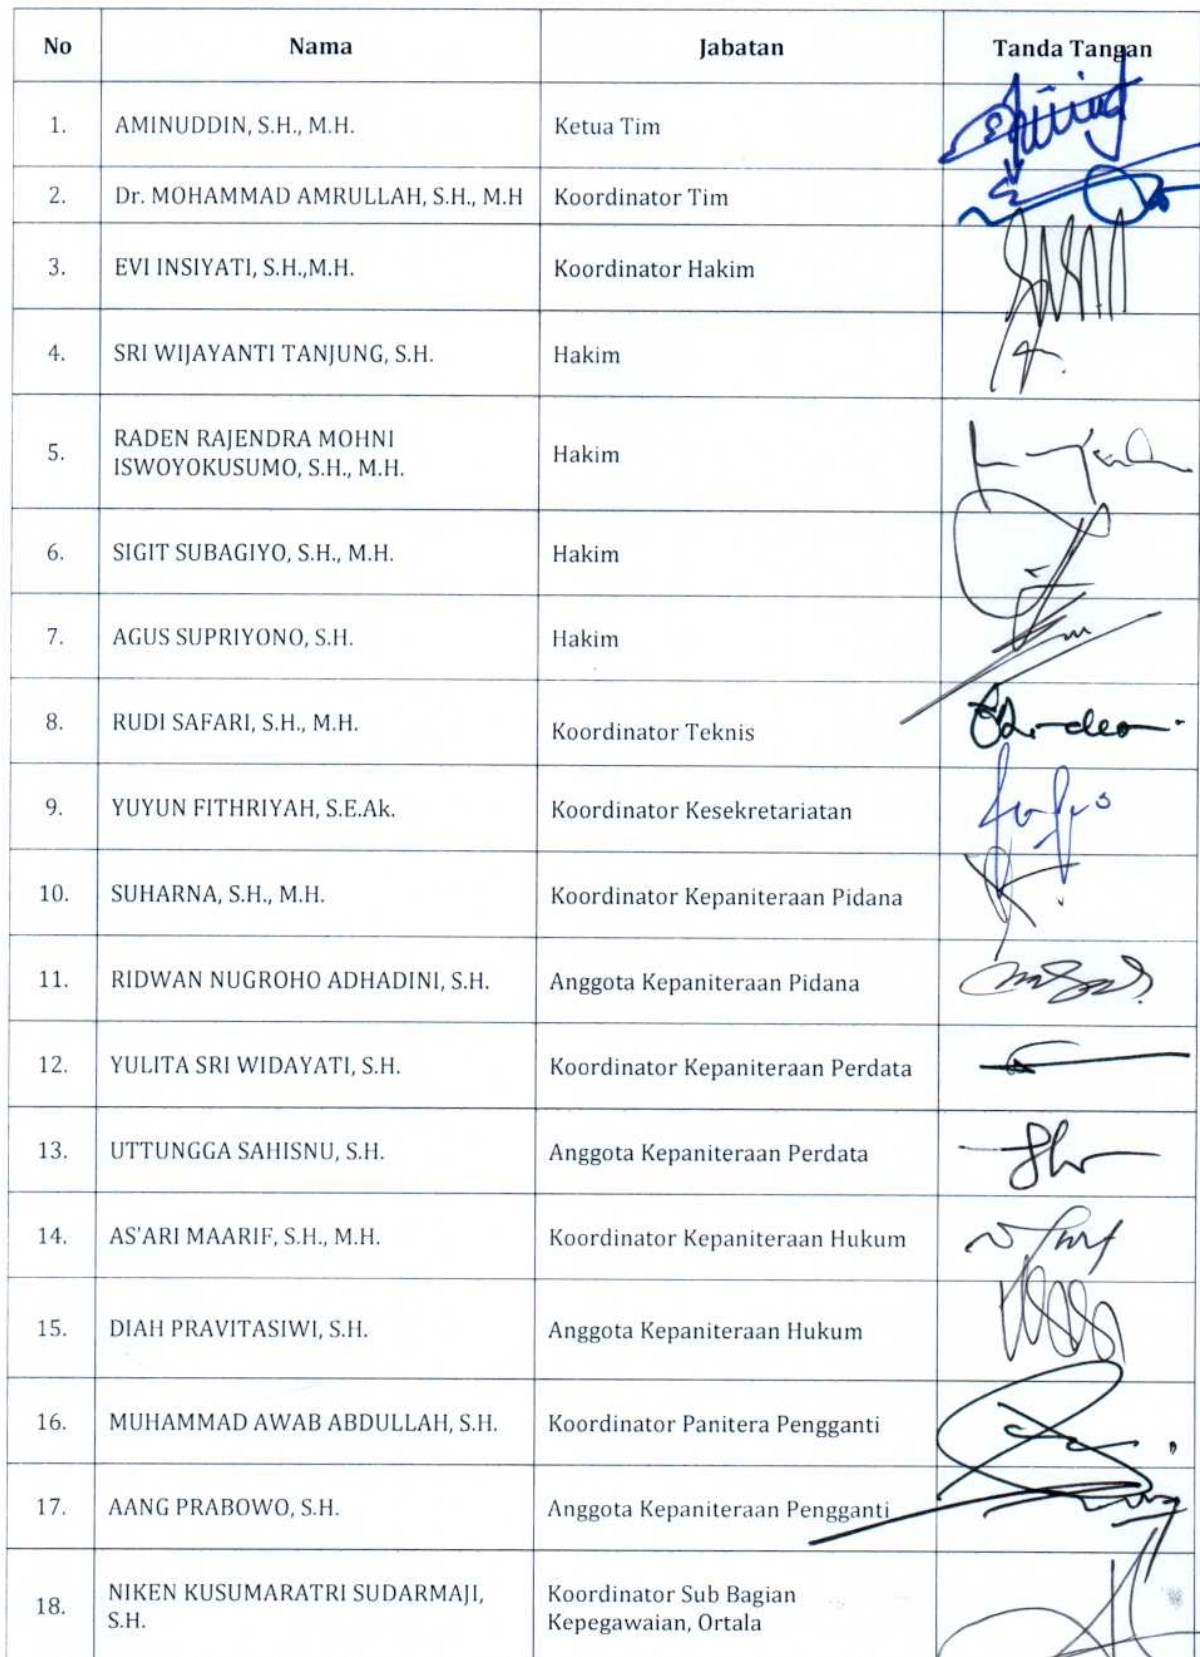 No Nama Jabatan Tanda Tangan
1. AMINUDDIN, S.H., M.H. Ketua Tim
2. Dr. MOHAMMAD AMRULLAH, S.H., M.H Koordinator Tim
3. EVI INSIYATI, S.H.,M.H. Koordinator Hakim
4. SRI WIJAYANTI TANJUNG, S.H. Hakim
5. RADEN RAJENDRA MOHNI
ISWOYOKUSUMO, S.H., M.H. Hakim
6. SIGIT SUBAGIYO, S.H., M.H. Hakim
7. AGUS SUPRIYONO, S.H. Hakim
8. RUDI SAFARI, S.H., M.H. Koordinator Teknis
9. YUYUN FITHRIYAH, S.E.Ak. Koordinator Kesekretariatan
10. SUHARNA, S.H., M.H. Koordinator Kepaniteraan Pidana
11. RIDWAN NUGROHO ADHADINI, S.H. Anggota Kepaniteraan Pidana
12. YULITA SRI WIDAYATI, S.H. Koordinator Kepaniteraan Perdata
13. UTTUNGGA SAHISNU, S.H. Anggota Kepaniteraan Perdata
14. AS'ARI MAARIF, S.H., M.H. Koordinator Kepaniteraan Hukum
15. DIAH PRAVITASIWI, S.H. Anggota Kepaniteraan Hukum
16. MUHAMMAD AWAB ABDULLAH, S.H. Koordinator Panitera Pengganti
17. AANG PRABOWO, S.H. Anggota Kepaniteraan Pengganti
18. NIKEN KUSUMARATRI SUDARMAJI, Koordinator Sub Bagian
S.H. Kepegawaian, Ortala